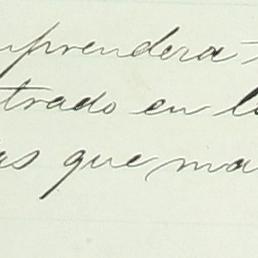 mprendera
trado en lo
as que ma